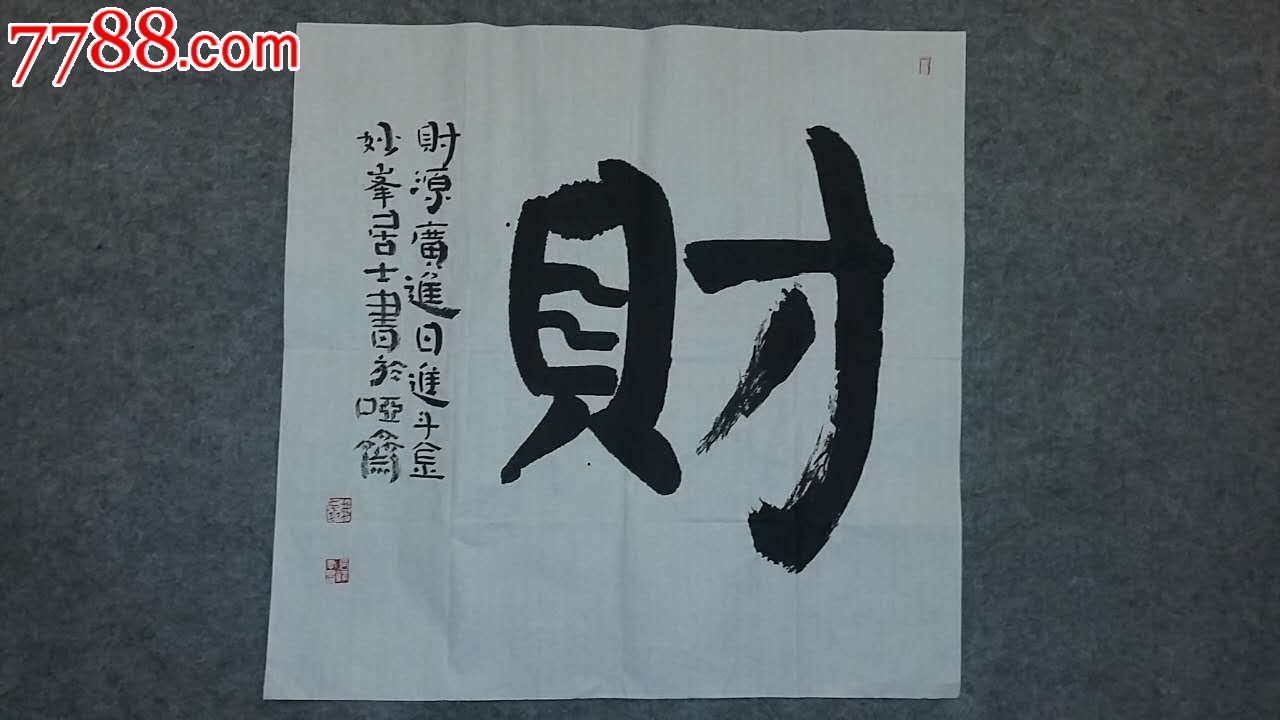 7788.com
財
財源廣進日進斗金
妙峯居士書於啞齋